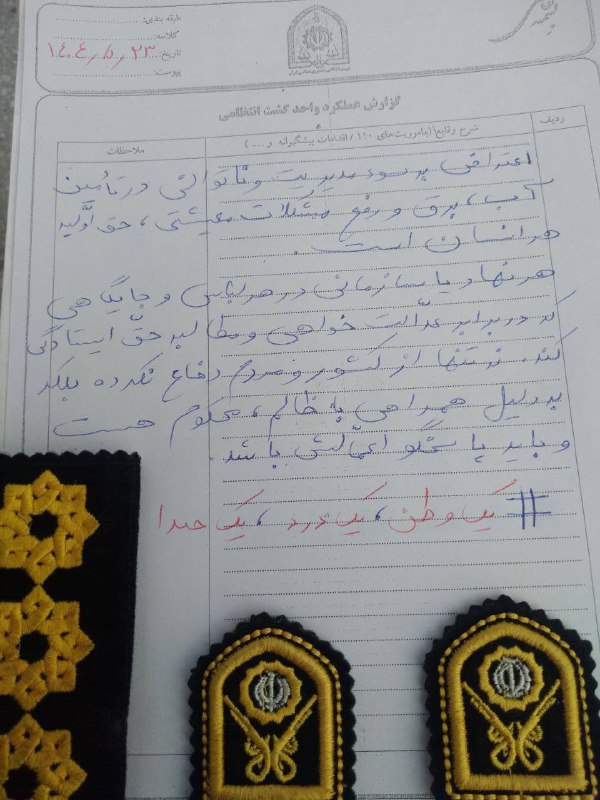 طبقه بندی:
کلاسه:
تاریخ: ۱۴۰۴٫۵٫۲۳
پیوست:
گزارش عملکرد واحد گشت انتظامی
ردیف
شرح وقایع (ماموریت‌های ۱۱۰ / اقدامات پیشگیرانه و .... )
ملاحظات
اعتراض به سوء مدیریت و ناتوانی در تأمین
آب، برق و رفع مشکلات معیشتی، حق اوّلیه
هر انسان است.
هر نهاد یا سازمانی در هر لباس و جایگاهی
که در برابر عدّالت خواهی و مطالبه حقّ ایستادگی
کند، نه تنها از کشور و مردم دفاع نکرده بلکه
به دلیل همراهی با ظالم، محکوم هست
و باید پاسخگو اعمّالش باشد.
# یک وطن، یک درد، یک صدا